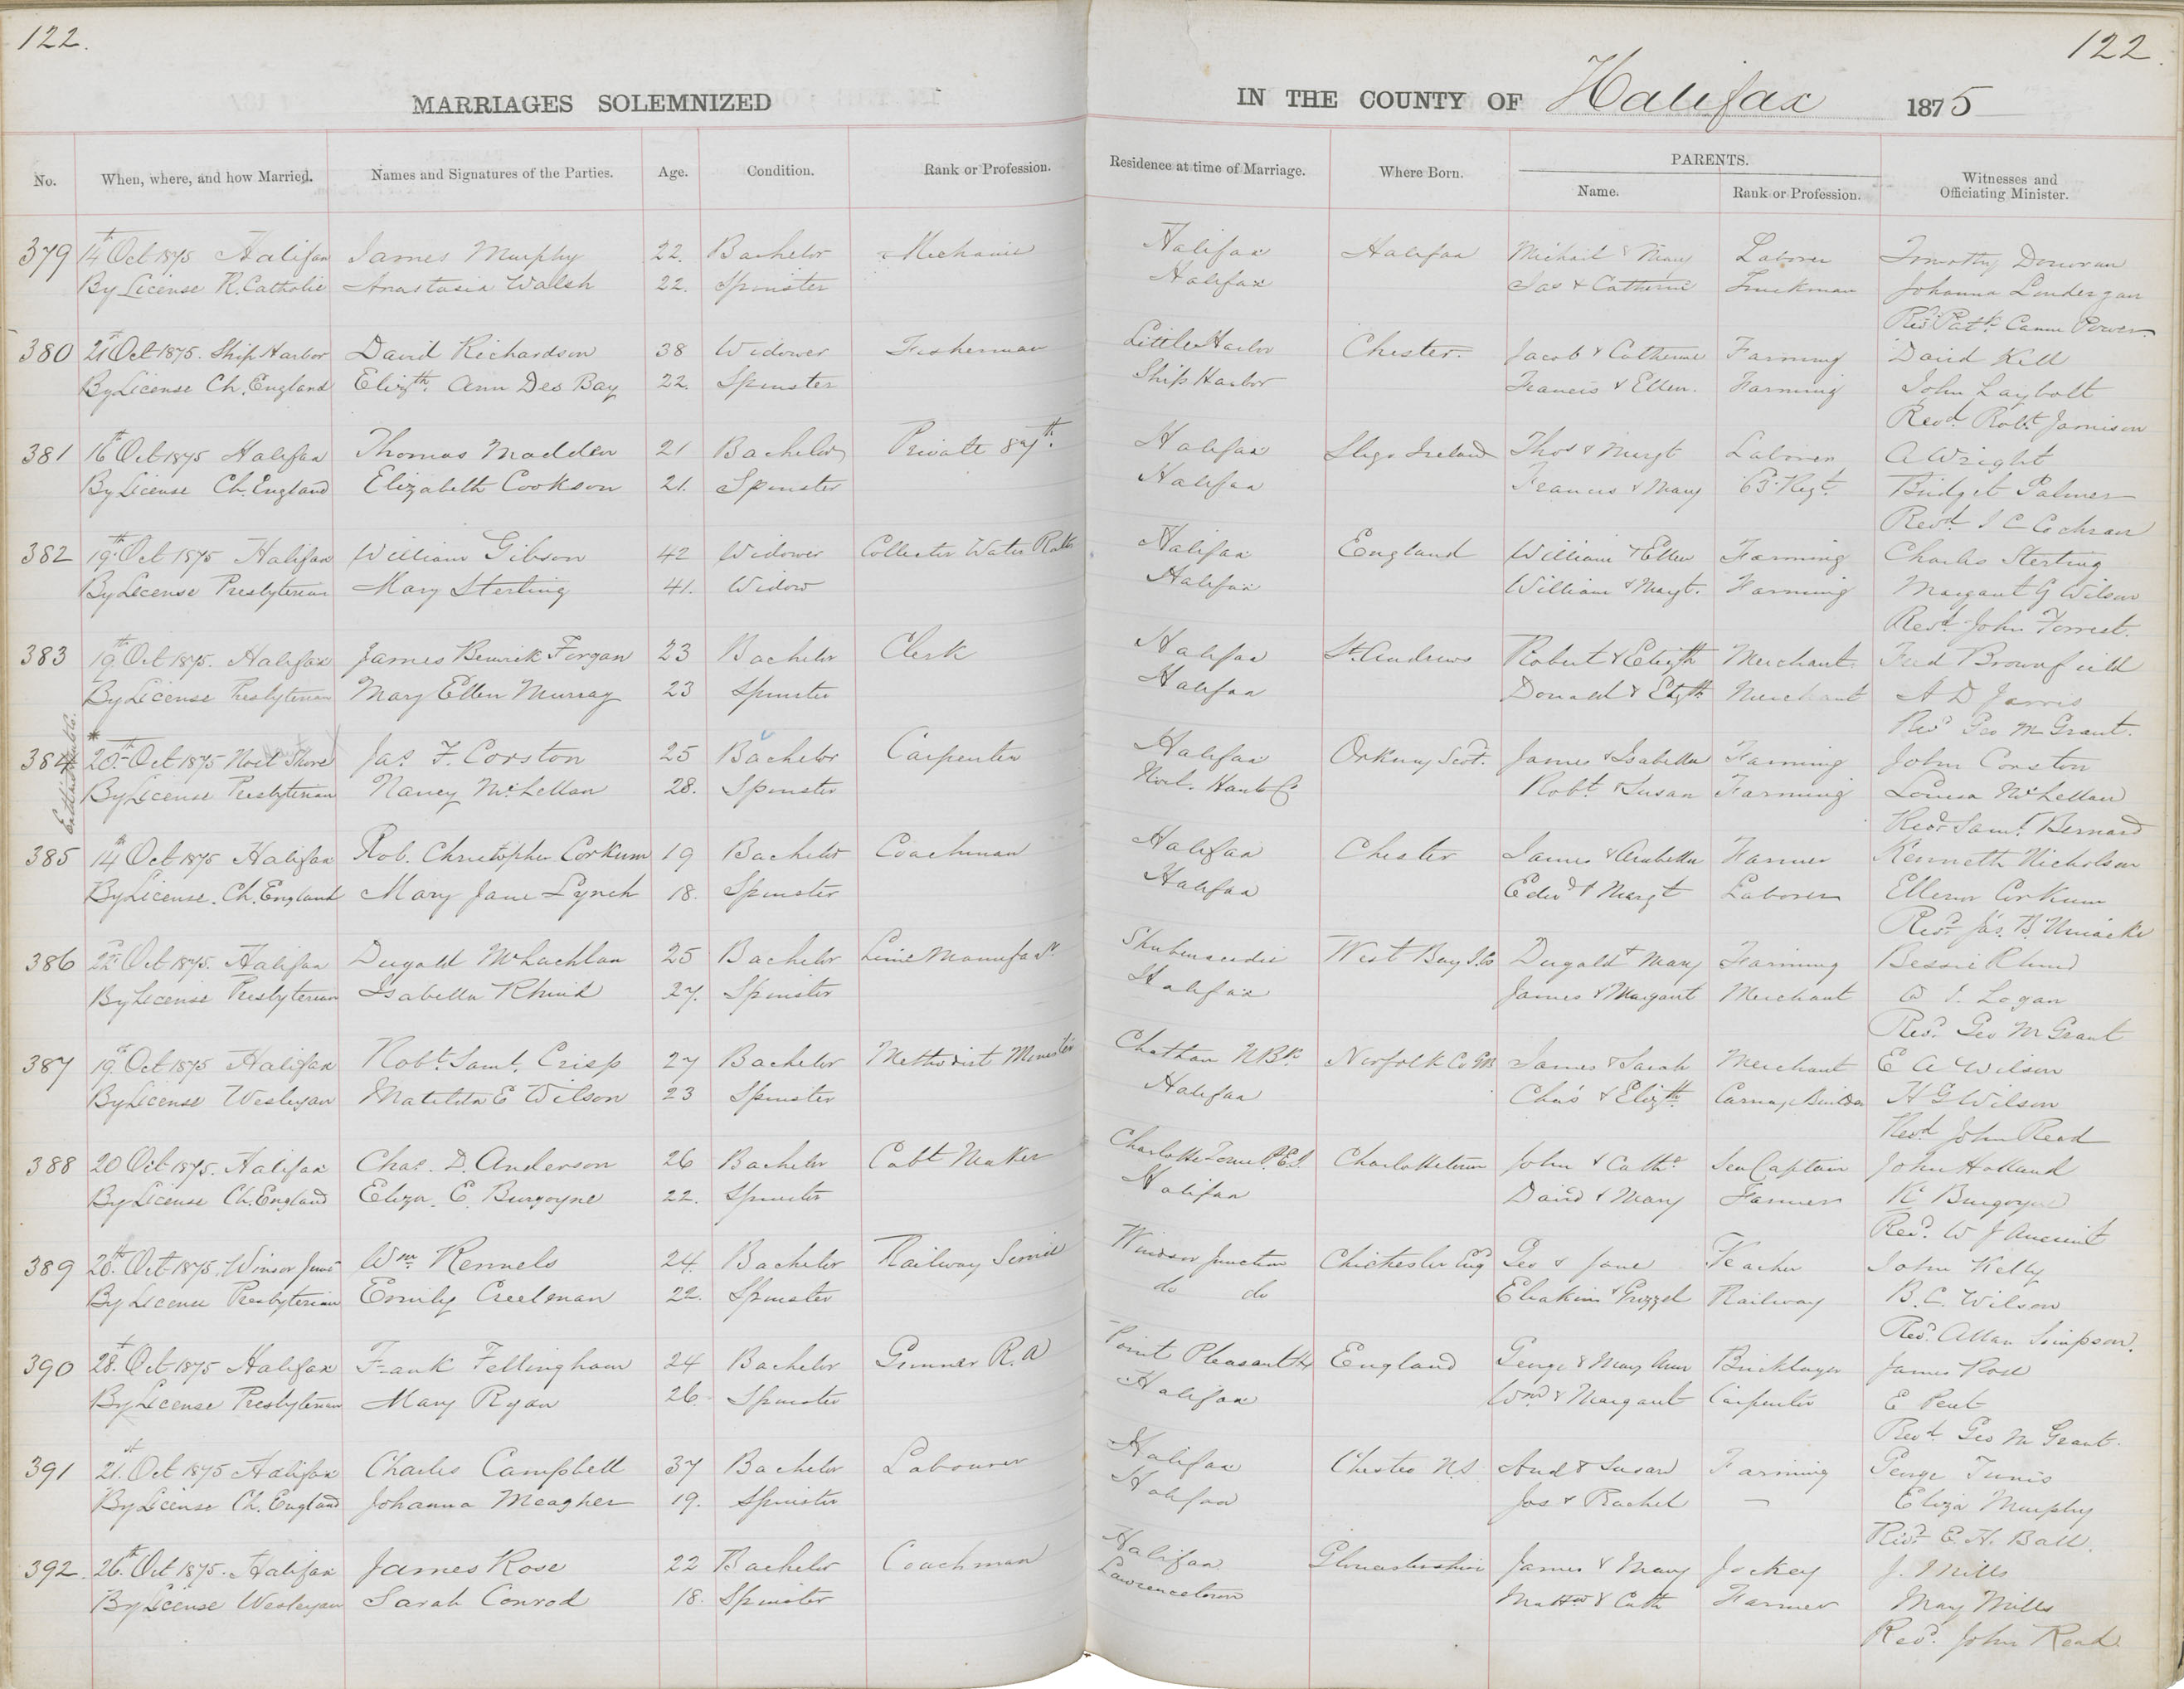 122.
122.
MARRIAGES SOLEMNIZED
IN THE COUNTY OF Halifax 1875
No. When, where, and how Married. Names and Signatures of the Parties. Age. Condition. Rank or Profession. Residence at time of Marriage. Where Born. PARENTS. Name. Rank or Profession. Witnesses and Officiating Minister.
379 14th Oct 1875 Halifax James Murphy 22. Bachelor Mechanic Halifax Halifax Michail & Mary Laborer Timothy Donovan
By License R. Catholic Anastasia Walsh 22. Spinster Halifax Jas & Catherine Truckman Johanna Londergan
Revd Patk. Canon Power
380 21st Oct 1875. Ship Harbor David Richardson 38 Widower Fisherman Little Harbor Chester. Jacob & Catherine Farming David Kill
By License Ch. England Elizth. Ann Des Bay 22. Spinster Ship Harbor Francis & Ellen. Farming John Laybolt
Revd. Robt Jamison
381 16th Oct 1875 Halifax Thomas Madden 21 Bachelor Private 87th. Halifax Sligo Ireland Thos & Margt Laborer A Wright
By License Ch. England Elizabeth Cookson 21. Spinster Halifax Francis & Mary 63 Regt. Bridget Palmer
Revd J C Cochran
382 19th Oct 1875 Halifax William Gibson 42 Widower Collector Water Rates Halifax England William & Ellen Farming Charles Sterling
By License Presbyterian Mary Sterling 41. Widow Halifax William & Margt. Farming Margaret G Wilson
Revd. John Forrest.
383 19th Oct 1875. Halifax James Berwick Forgan 23 Bachelor Clerk Halifax St. Andrews Robert & Elizth Merchant. Fred Brownfield
By License Presbyterian Mary Ellen Murray 23 Spinster Halifax Donald & Elizth Merchant A D Jarvis
Revd Geo M Grant.
384 * 20th Oct 1875 Noel Shore Jas. F. Corston 25 Bachelor Carpenter Halifax Orkney Scot. James & Isabella Farming John Corston
By License Presbyterian Nancy McLellan 28. Spinster Noel. Hants Co Robt. & Susan Farming Louisa McLellan
Revd Saml. Bernard
385 14th Oct 1875 Halifax Rob. Christopher Corkum 19 Bachelor Coachman Halifax Chester James & Arabella Farmer Kenneth Nicholson
By License. Ch. England Mary Jane Lynch 18. Spinster Halifax Edwd & Margt Laborer Ellenor Corkum
Revd Jas. B Uniacke
386 22nd Oct 1875. Halifax Dugald McLachlan 25 Bachelor Lime Manufactr Shubenacadie West Bay Dugald & Mary Farming Bessie Rhind
By License Presbyterian Isabella Rhind 27. Spinster Halifax James & Margaret Merchant Logan
Revd. Geo M Grant
387 19th Oct 1875 Halifax Robt. Saml. Crisp 27 Bachelor Methodist Minister Chatham NBk. Norfolk Co GB James & Sarah Merchant E A Wilson
By License Wesleyan Matilda E Wilson 23 Spinster Halifax Chas & Elizth. Carriage Builder H G Wilson
Revd John Read
388 20 Oct 1875. Halifax Chas. D. Anderson 26 Bachelor Cabt Maker Charlotte Town P.E.I. Charlottetown John & Cathe Sea Captain John Holland
By License Ch. England Eliza. E. Burgoyne 22. Spinster Halifax David & Mary Farmer K Burgoyne
Revd. W J Ancient
389 20th. Oct 1875. Winsor Junc Wm Kennels 24. Bachelor Railway Service Windsor Junction Chichester Eng Geo & Jane Teacher John Kelly
By License Presbyterian Emily Creelman 22. Spinster do do Eliakim & Grizzel Railway B. C. Wilson
Revd. Allan Simpson.
390 28th. Oct 1875 Halifax Frank Fellingham 24 Bachelor Gunner R.A Point Pleasant Hx England George & Mary Ann Bricklayer James Rose
By License Presbyterian Mary Ryan 26. Spinster Halifax Wm & Margaret Carpenter E Pent
Revd. Geo M Grant.
391 21st. Oct 1875 Halifax Charles Campbell 37 Bachelor Labourer Halifax Chester N.S And & Susan Farming George Tunis
By License Ch. England Johanna Meagher 19. Spinster Halifax Jos & Rachel — Eliza Murphy
Revd. E. H. Ball.
392. 26th Oct 1875. Halifax James Rose 22 Bachelor Coachman Halifax Gloucestershire James & Mary Jockey J. Mills
By License Wesleyan Sarah Conrod 18. Spinster Lawrencetown Matthw & Cath Farmer May Mills
Revd. John Read